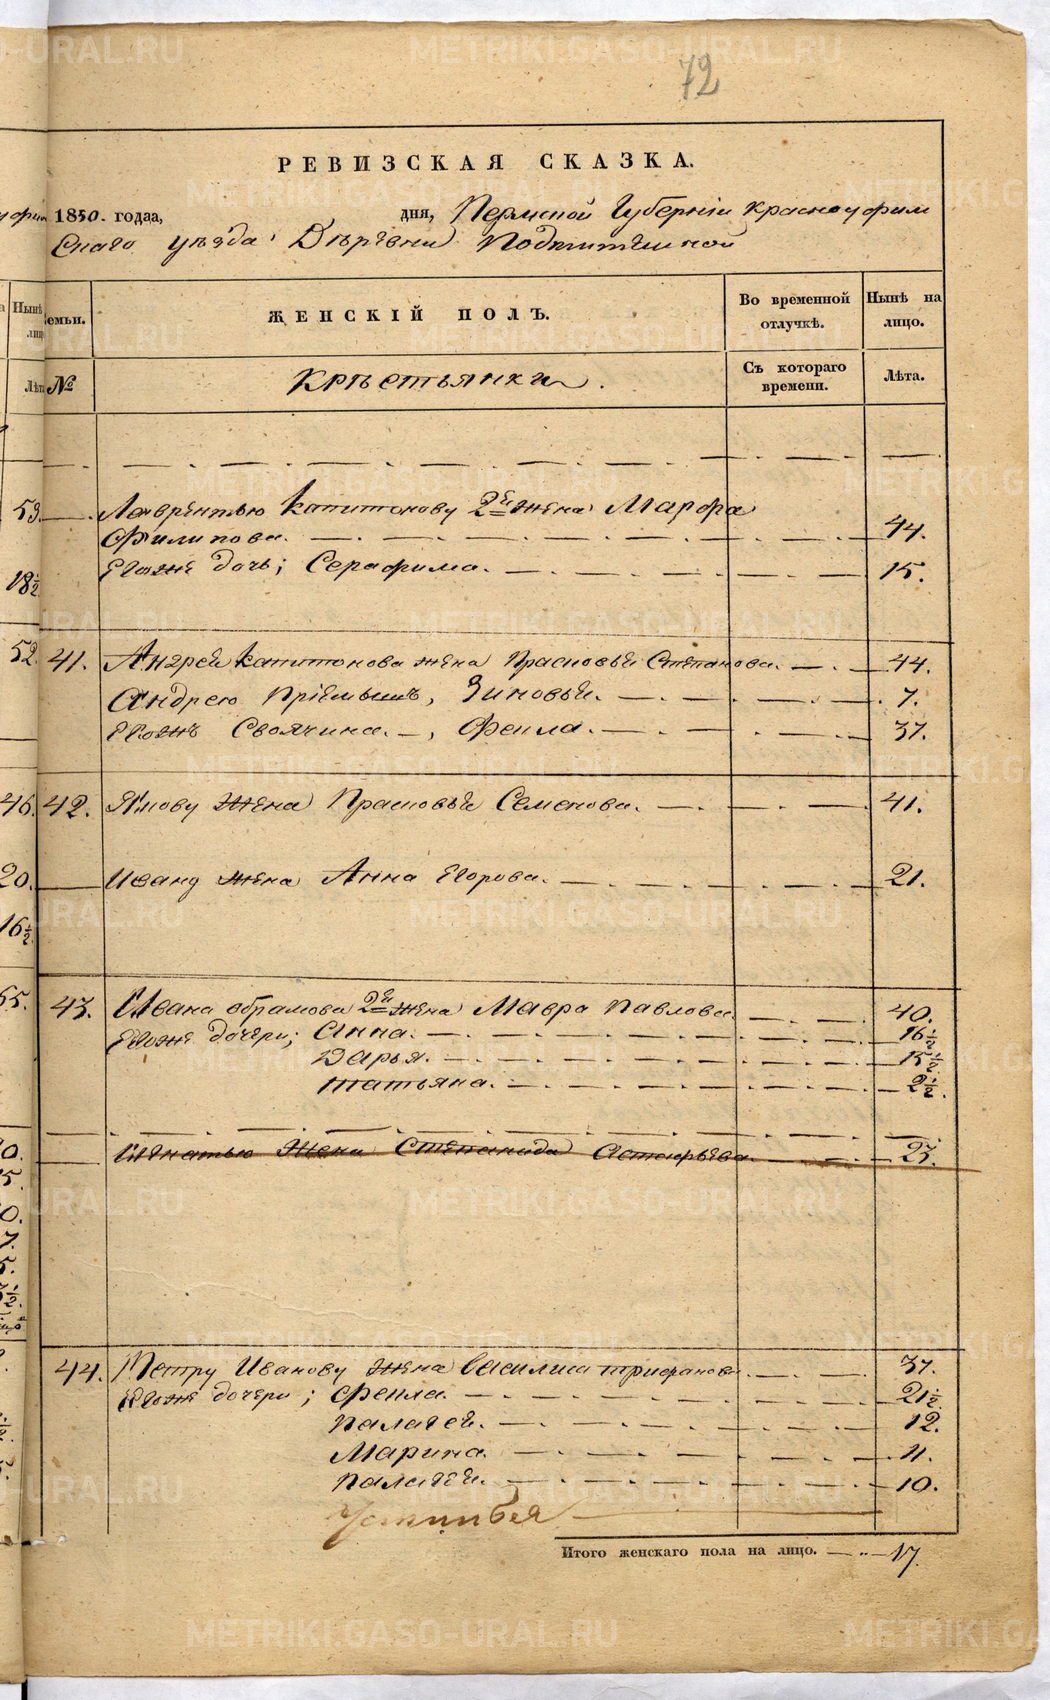 72
РЕВИЗСКАЯ СКАЗКА.
1850. годаа, дня, Пермской Губерніи Красноуфим
скаго уѣзда Деревни
емьи. ЖЕНСКІЙ ПОЛЪ. Во временной отлучкѣ. Нынѣ на лицо.
№ Крѣстьянки. Съ котораго времени. Лѣта.
Лаврентью Капитонову 2й жена Марфа
Филипова. 44.
Егоже дочь; Серафима. 15.
41. Андрей Капитонова жена Прасковья Степанова. 44.
Андрею Пріемышъ, Зиновья. 7.
Егожъ Своячина, Фекла. 37.
42. Якову Жена Прасковья Семенова. 41.
Ивану жена Анна Егорова. 21.
43. Ивана обрамова 2й жена Мавра Павлова 40.
Егоже дочери; Анна. 16½
Дарья. 15½
татьяна. 2½.
Игнатью Жена Степанида Астафьева 23.
44. Петру Иванову Жена Василиса трифанова. 37.
Егоже дочери; Фекла. 21½
Палагея. 12.
Марина. 11.
Палагея. 10.
Устинья
Итого женскаго пола на лицо. 17.
53.
18½
52.
46.
20.
16½
55.
METRIKI.GASO-URAL.RU